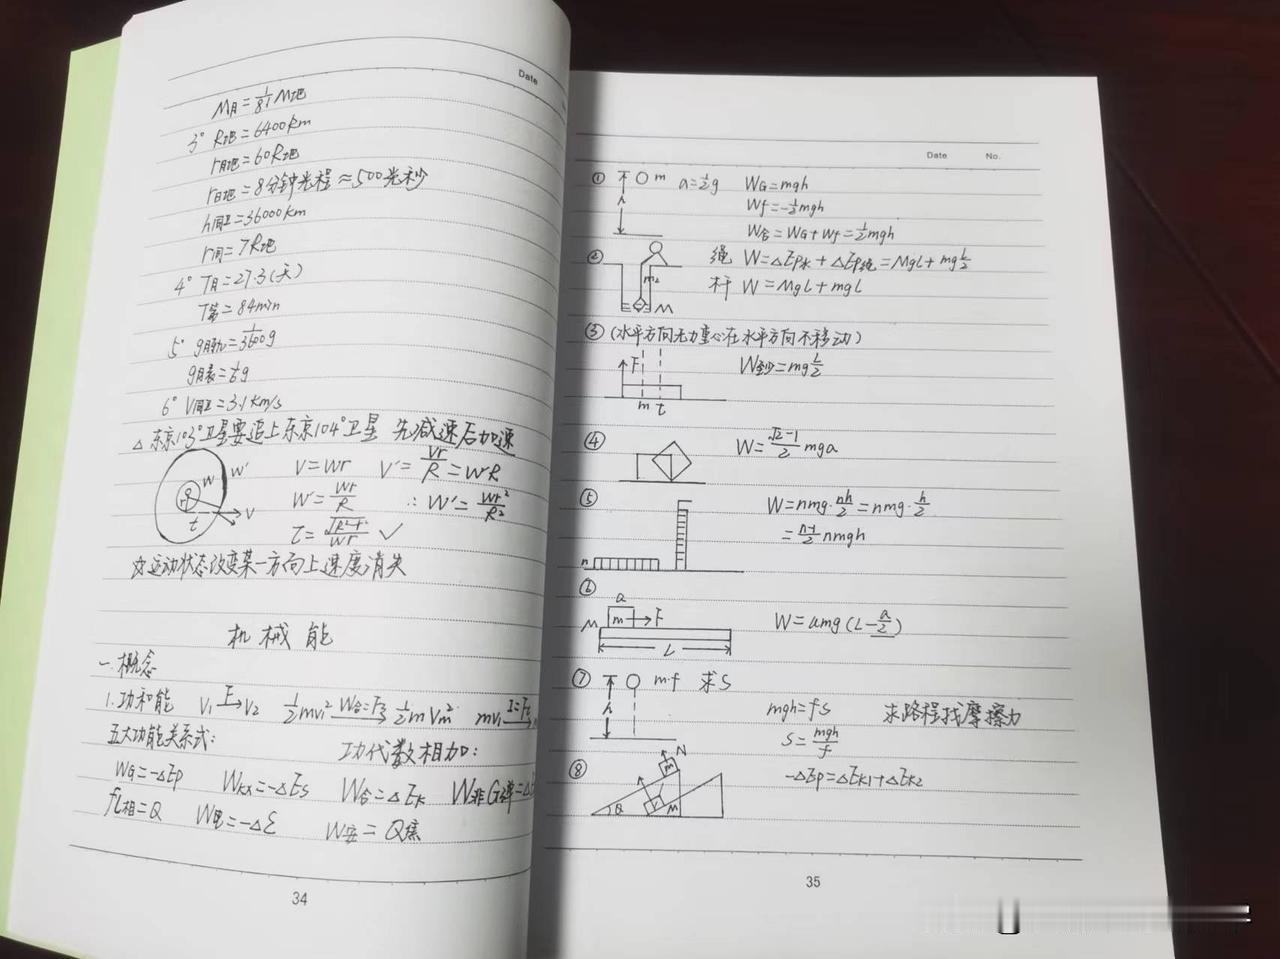 Date
M月=1/81 M地
3° R地=6400km
r月地=60R地
r日地=8分钟光程≈500光秒
h同卫=36000km
r同=7R地
4° T月=27.3(天)
T近=84min
5° g月轨=1/3600 g
g月表=1/6 g
6° V同卫=3.1km/s
△ 东京103°卫星要追上东京104°卫星 先减速后加速
V=Wr V'=Vr/R=WR
W'=Wr/R ∴W'=Wr²/R²
t=√R²-r²/Wr ✓
W W' r t V
☆运动状态改变某一方向上速度消失
机械能
一.概念
1.功和能 V₁ F→ V₂ ½mv₁² W合=FS→ ½mVm² mv₁ I=Ft→
五大功能关系式: 功代数相加:
WG=-△Ep WKX=-△Es W合=△Ek W非G弹=△
fL相=Q W电=-△ε W安=Q焦
34
Date No.
① h m a=½g WG=mgh
Wf=-½mgh
W合=WG+Wf=½mgh
② 绳 W=△Ep水+△Ep绳=MgL+mg L/2
m M 杆 W=MgL+mgL
③ (水平方向无力重心在水平方向不移动)
F W至少=mg L/2
m t
④ W=√2-1/2 mga
⑤ W=nmg·nh/2=nmg·h/2
n =n-1/2 nmgh
⑥ a
M m F W=umg(L-a/2)
L
⑦ h m.f 求S
mgh=fS 求路程找摩擦力
S=mgh/f
⑧ N m M θ -△Ep=△Ek1+△Ek2
35